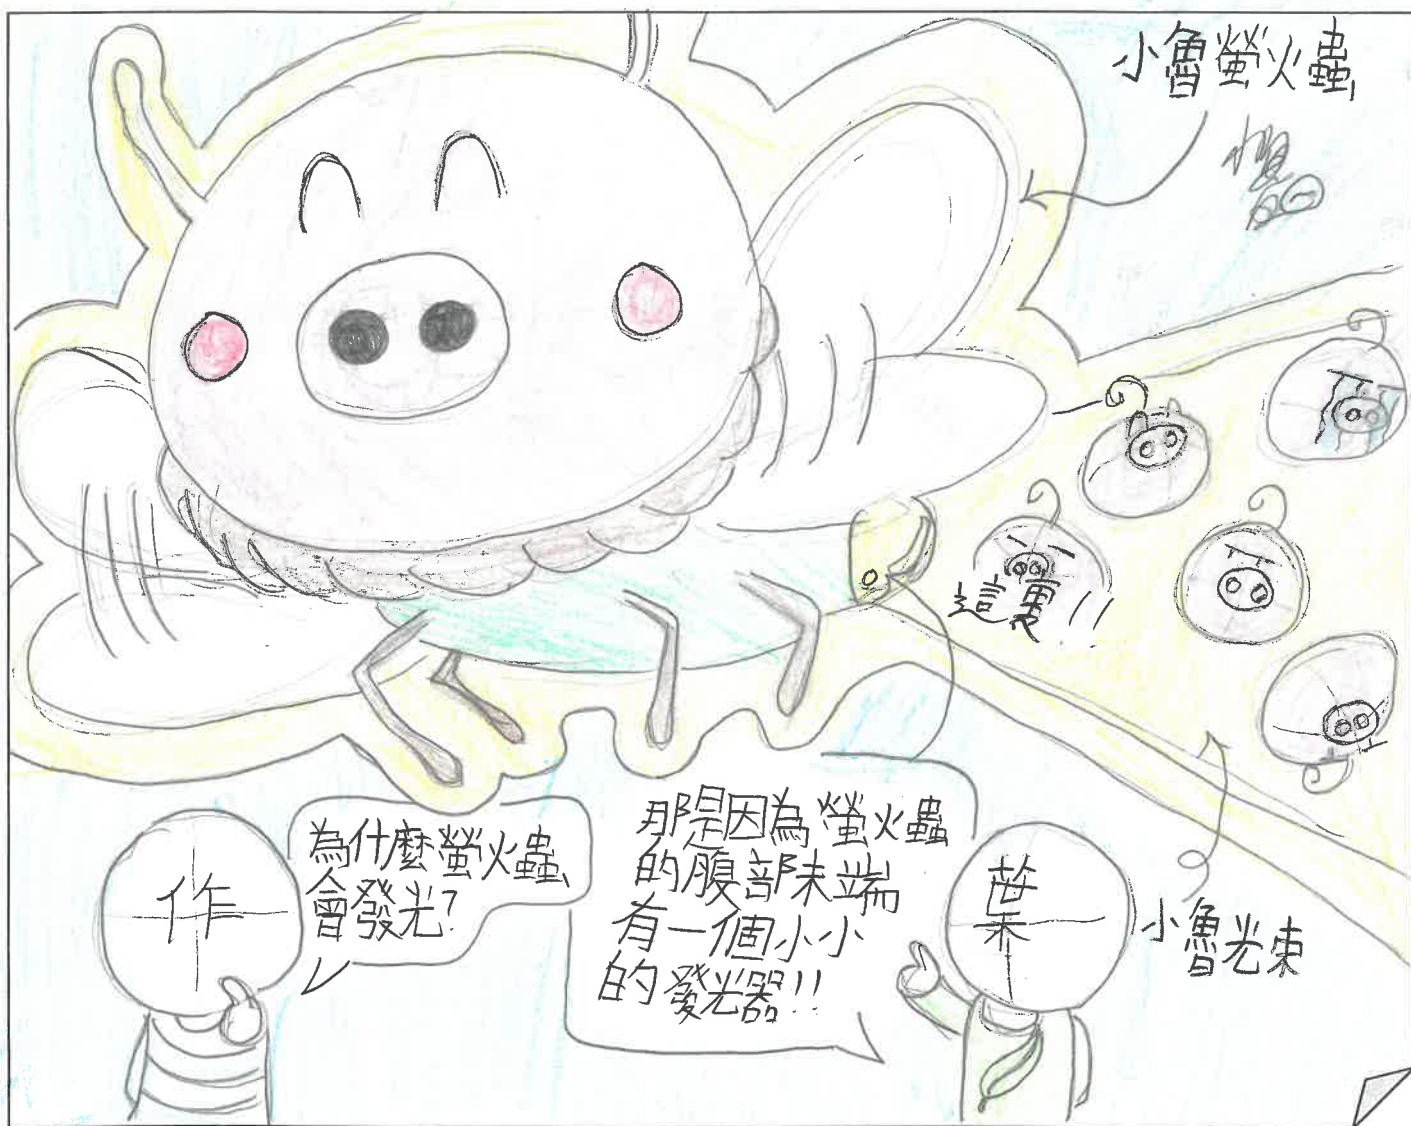 小魯螢火蟲
這裏!!
為什麼螢火蟲
會發光?
那是因為螢火蟲
的腹部末端
有一個小小
的發光器!!
作
葉
小魯光束